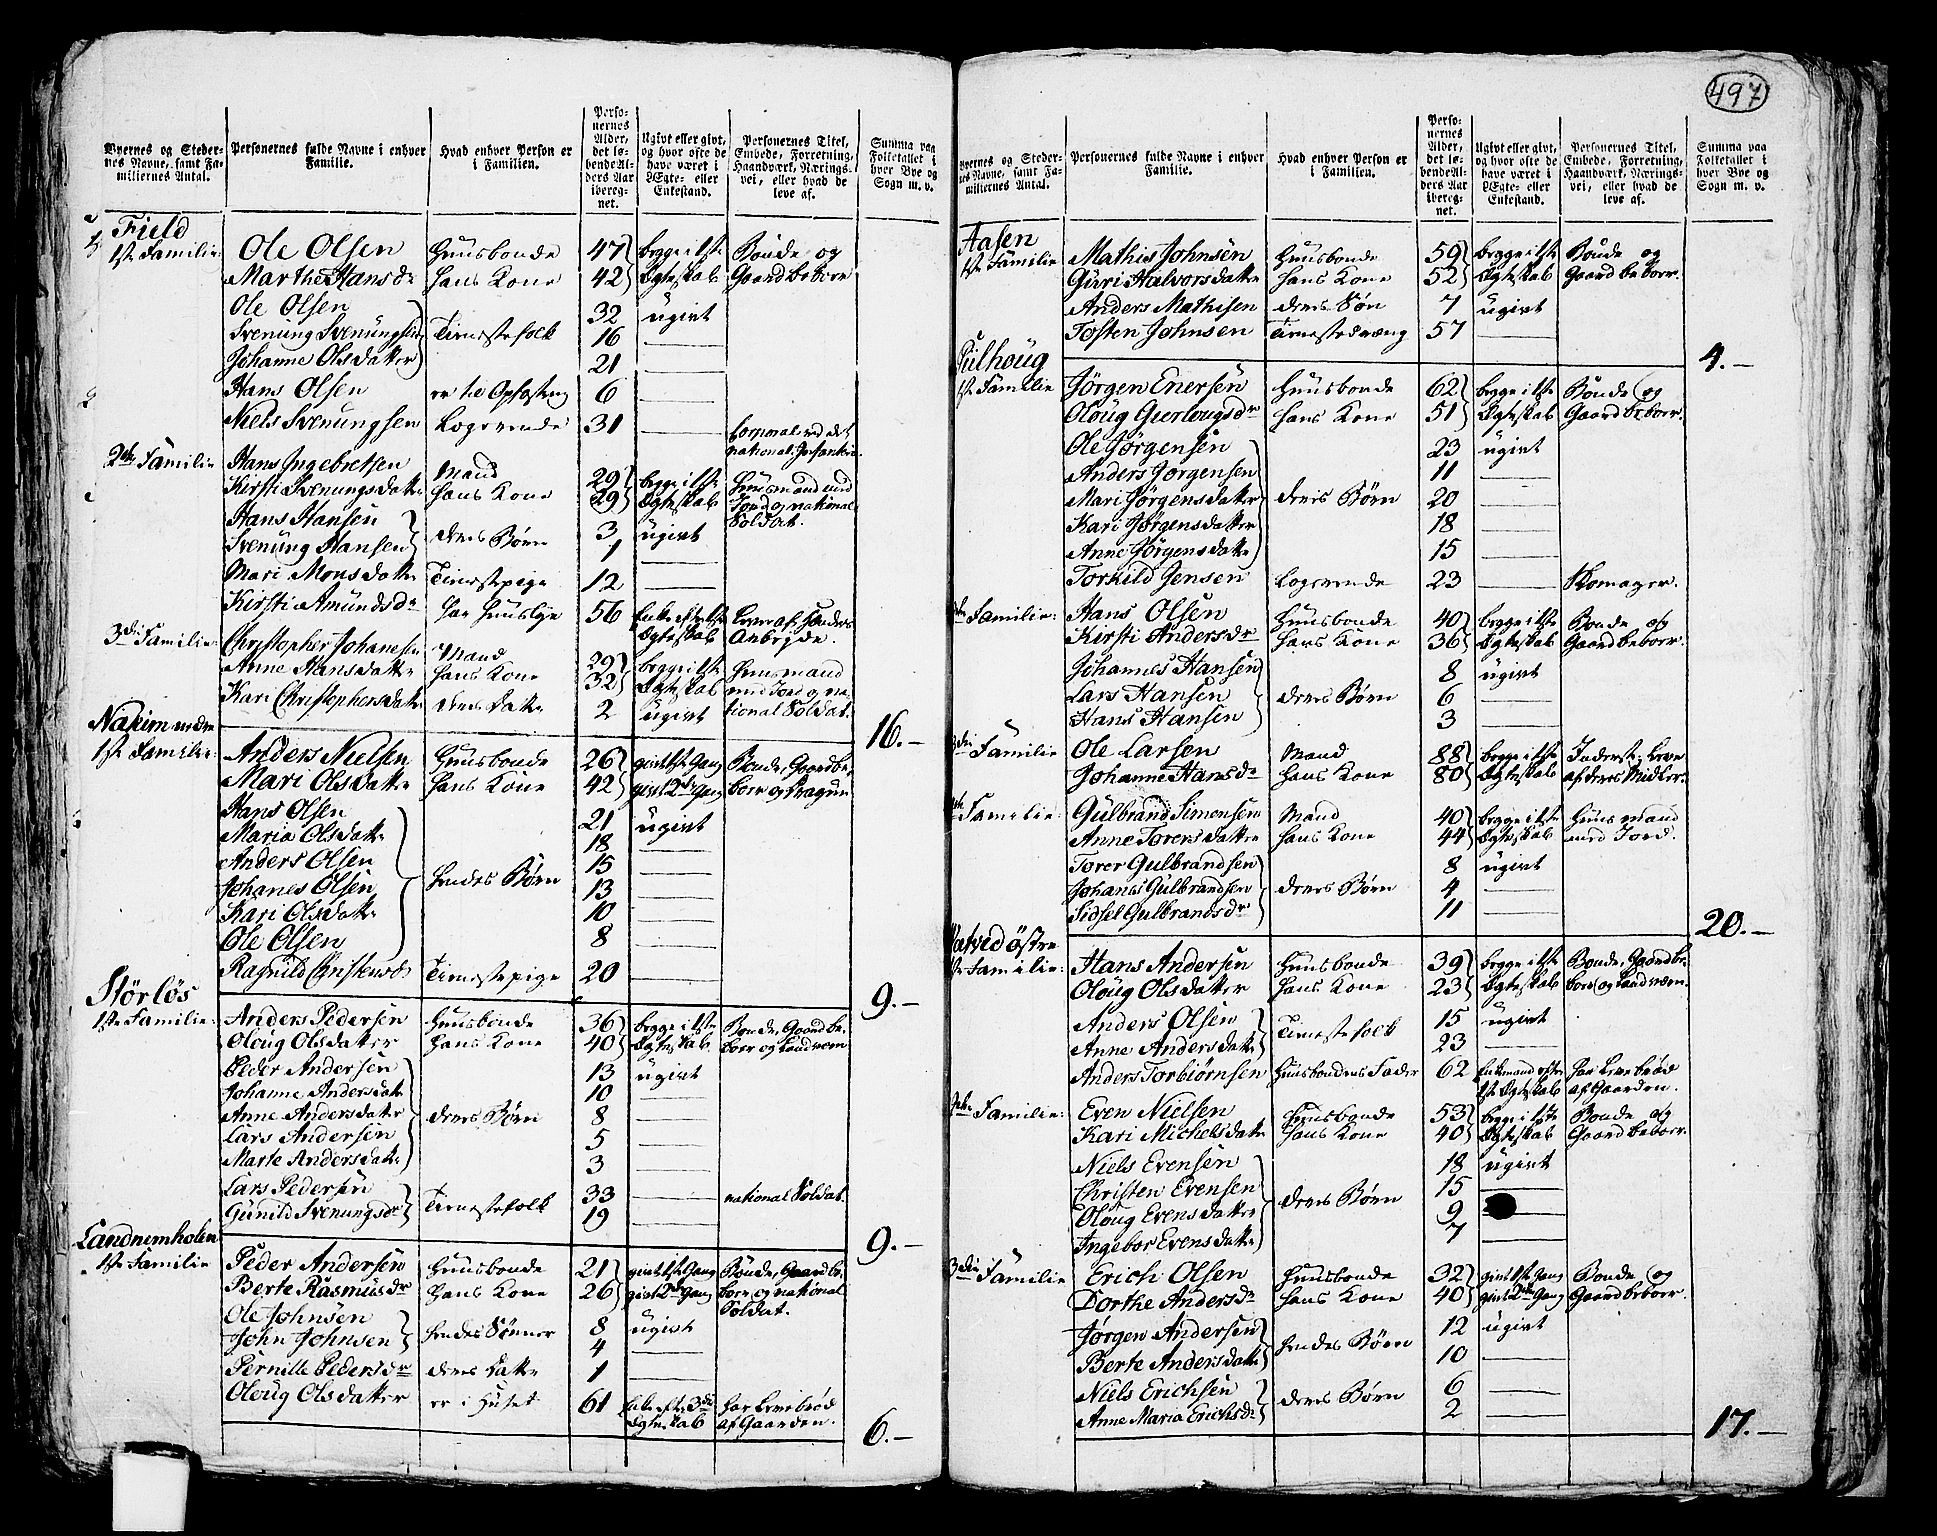 497
Byernes og Steder-
nes Navne, samt Fa-
miliernes Antal.
Personernes fulde Navne i enhver
Familie.
Hvad enhver Person er
i Familien.
Perso-
nernes
Alder,
det lø-
bende Al-
ders Aar
ibereg-
net.
Ugivt eller givt,
og hvor ofte de
have været i
Ægte- eller
Enkestand.
Personernes Titel,
Embede, Forretning,
Haandværk, Nærings-
vei, eller hvad de
leve af.
Summa paa
Folketallet i
hver Bye og
Sogn m. v.
Field
1ste Familie: Ole Olsen Huusbonde 47 begge i 1ste Bonde og
Marthe Hansdr hans Kone 42 Ægteskab Gaardbeboer
Ole Olsen 32 ugivt
Svenung Svenungsen Tienestefolk 16
Johanne Olsdatter 21
Hans Olsen er til Opfostring 6
Niels Svenungsen Logerende 31 Corporal ved det
national Infanterie
2den Familie Hans Ingebretsen Mand 29 begge i 1ste Huusmand med
Kirsti Svenungsdatter hans Kone 29 Ægteskab Jord og national
Hans Hansen 3 ugivt Soldat.
Svenung Hansen deres Børn 1
Mari Monsdatter Tienestepige 12
Kirsti Amundsdr har Huuslye 56 Enke efter 1ste Lever af Hænders
Ægteskab Arbejde.
3die Familie: Christopher Johanesen Mand 29 begge i 1ste Huusmand
Anne Hansdatter hans Kone 32 Ægteskab med Jord og na-
Kari Christophersdatter deres Datter 2 ugivt tional Soldat.
16.-
Nakim nedre
1ste Familie: Anders Nielsen Huusbonde 26 givt 1ste Gang Bonde, Gaardbe-
Mari Olsdatter hans Kone 42 givt 2den Gang boer og Dragun
Hans Olsen 21 ugivt
Maria Olsdatter 18
Anders Olsen 15
Johanes Olsen hendes Børn 13
Kari Olsdatter 10
Ole Olsen 8
Ragnild Christensdr Tienestepige 20
9.-
Störlös
1ste Familie: Anders Pedersen Huusbonde 36 begge i 1ste Bonde, Gaardbe-
Oloug Olsdatter hans Kone 40 Ægteskab boer og Landværn
Peder Andersen 13 ugivt
Johanne Andersdatter 10
Anne Andersdatter deres Børn 8
Lars Andersen 5
Marte Andersdatter 3
Lars Pedersen 33 national Soldat.
Gunild Svenungsdr Tienestefolk 19
9.-
Landnemholen
1ste Familie Peder Andersen Huusbonde 21 givt 1ste Gang Bonde, Gaardbe-
Berte Rasmusdr hans Kone 26 givt 2den Gang boer og national
Ole Johnsen 8 ugivt Soldat.
John Johnsen hendes Sønner 4
Pernille Pedersdr deres Datter 1
Oloug Olsdatter er i Huset 61 Enke efter 3die har Levebrød
Ægteskab af Gaarden.
6.-
Byernes og Steder-
nes Navne, samt Fa-
miliernes Antal.
Personernes fulde Navne i enhver
Familie.
Hvad enhver Person er
i Familien.
Perso-
nernes
Alder,
det lø-
bende Al-
ders Aar
ibereg-
net.
Ugivt eller givt,
og hvor ofte de
have været i
Ægte- eller
Enkestand.
Personernes Titel,
Embede, Forretning,
Haandværk, Nærings-
vei, eller hvad de
leve af.
Summa paa
Folketallet i
hver Bye og
Sogn m. v.
Aasen
1ste Familie Mathis Johnsen Huusbonde 59 begge i 1ste Bonde og
Guri Halvorsdatter hans Kone 52 Ægteskab Gaardbeboer.
Anders Mathisen deres Søn 7 ugivt
Tosten Johnsen Tienestedræng 57
4.-
Julhoug
1ste Familie Jörgen Enersen Huusbonde 62 begge i 1ste Bonde og
Oloug Guelougsdr hans Kone 51 Ægteskab Gaardbeboer.
Ole Jörgensen 23 ugivt
Anders Jörgensen 11
Mari Jörgensdatter deres Børn 20
Kari Jörgensdatter 18
Anne Jörgensdatter 15
Torkild Jensen Logerende 23 Skomager.
Familie: Hans Olsen Huusbonde 40 begge i 1ste Bonde og
Kirsti Andersdr hans Kone 36 Ægteskab Gaardbeboer.
Johannes Hansen 8 ugivt
Lars Hansen deres Børn 6
Hans Hansen 3
3die Familie Ole Larsen Mand 88 begge i 1ste Inderste, Leve
Johanne Hansdr hans Kone 80 Ægteskab af deres Midler.
Familie: Gulbrand Simensen Mand 40 begge i 1ste Huusmand
Anne Torersdatter hans Kone 44 Ægteskab med Jord.
Torer Gulbrandsen 8 ugivt
Johanes Gulbrandsen deres Børn 4
Sidsel Gulbrandsdr 11
20.-
Vatvedøstre
1ste Familie: Hans Andersen Huusbonde 39 begge i 1ste Bonde, Gaardbe-
Oloug Olsdatter hans Kone 23 Ægteskab boer og Landværn.
Anders Olsen 15 ugivt
Anne Andersdatter Tienestefolk 23
Anders Torbiörnsen Huusbondens Fader 62 Enkemand efter har Levebrød
1ste Ægteskab af Gaarden.
2den Familie: Even Nielsen Huusbonde 53 begge i 1ste Bonde og
Kari Michelsdatter hans Kone 40 Ægteskab Gaardbeboer.
Niels Evensen 18 ugivt
Christen Evensen 15
Oloug Evensdatter deres Børn 9
Ingebor Evensdatter 7
3die Familie Erich Olsen Huusbonde 32 givt 1ste Gang Bonde og
Dorthe Andersdr hans Kone 40 givt 2den Gang Gaardbeboer.
Jörgen Andersen 12 ugivt
Berte Andersdatter hendes Børn 10
Niels Erichsen 6
Anne Maria Erichsdr deres Børn 2
17.-